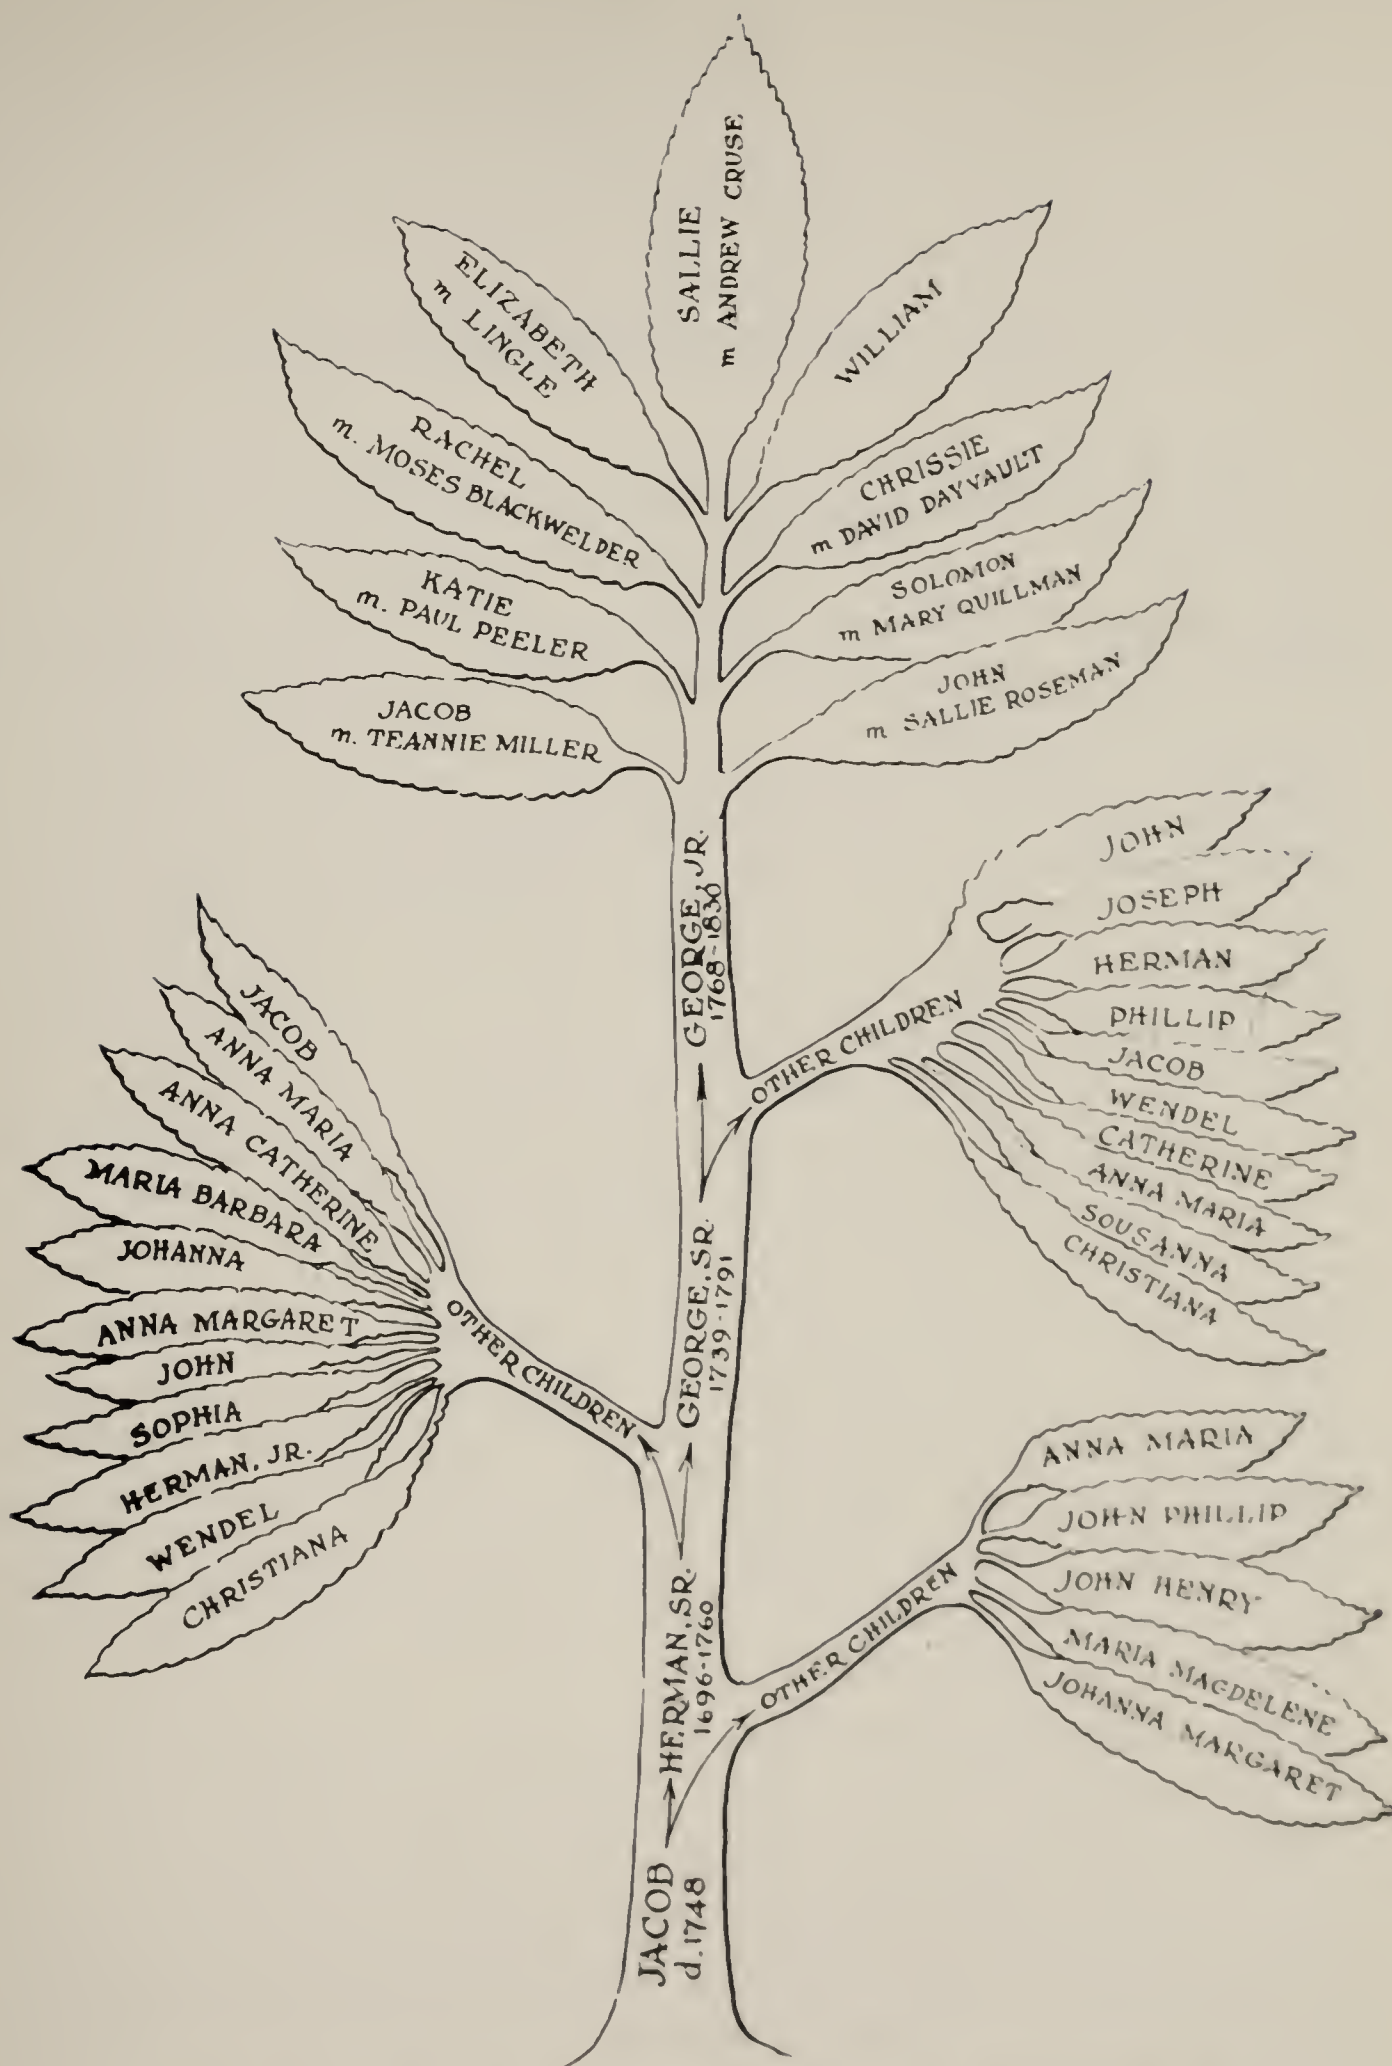 SALLIE
m ANDREW CRUSE
ELIZABETH
m LINGLE
WILLIAM
RACHEL
m. MOSES BLACKWELDER
CHRISSIE
m DAVID DAYVAULT
KATIE
m. PAUL PEELER
SOLOMON
m MARY QUILLMAN
JACOB
m. TEANNIE MILLER
JOHN
m SALLIE ROSEMAN
GEORGE, JR.
1768-1830
OTHER CHILDREN
JOHN
JOSEPH
HERMAN
PHILLIP
JACOB
WENDEL
CATHERINE
ANNA MARIA
SOUSANNA
CHRISTIANA
GEORGE, SR.
1739-1791
OTHER CHILDREN
JACOB
ANNA MARIA
ANNA CATHERINE
MARIA BARBARA
JOHANNA
ANNA MARGARET
JOHN
SOPHIA
HERMAN, JR.
WENDEL
CHRISTIANA
HERMAN, SR.
1696-1760
OTHER CHILDREN
ANNA MARIA
JOHN PHILLIP
JOHN HENRY
MARIA MAGDELENE
JOHANNA MARGARET
JACOB
d. 1748